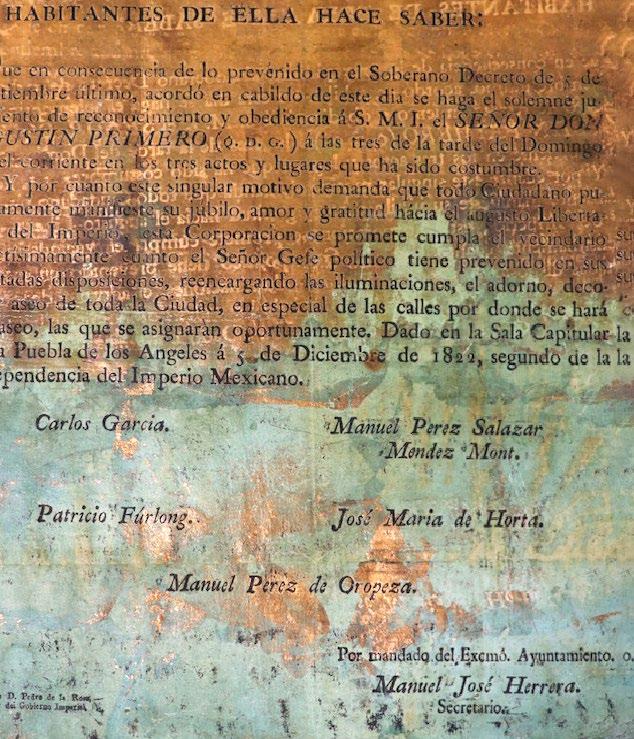 HABITANTES DE ELLA HACE SABER:
ue en consecuencia de lo prevenido en el Soberano Decreto de 5 de
tiembre último, acordó en cabildo de este dia se haga el solemne ju-
ento de reconocimiento y obediencia á S. M. I. el SEÑOR DON
GUSTIN PRIMERO (Q. D. G.) á las tres de la tarde del Domingo
el corriente en los tres actos y lugares que ha sido costumbre.
Y por cuanto este singular motivo demanda que todo Ciudadano pu-
amente manifieste su jubilo, amor y gratitud hácia el augusto Liberta-
del Imperio, esta Corporacion se promete cumpla el vecindario
ctisimamente cuanto el Señor Gefe político tiene prevenido en sus
tadas disposiciones, reencargando las iluminaciones, el adorno, deco-
aseo de toda la Ciudad, en especial de las calles por donde se hará
aseo, las que se asignarán oportunamente. Dado en la Sala Capitular la
a Puebla de los Angeles á 5 de Diciembre de 1822, segundo de la la
ependencia del Imperio Mexicano.
Carlos Garcia.
Manuel Perez Salazar
Mendez Mont.
Patricio Fúrlong.
José Maria de Horta.
Manuel Perez de Oropeza.
Por mandado del Excmô. Ayuntamiento. o.
Manuel José Herrera.
Secretario.
D. Pedro de la Rosa,
del Gobierno Imperial.